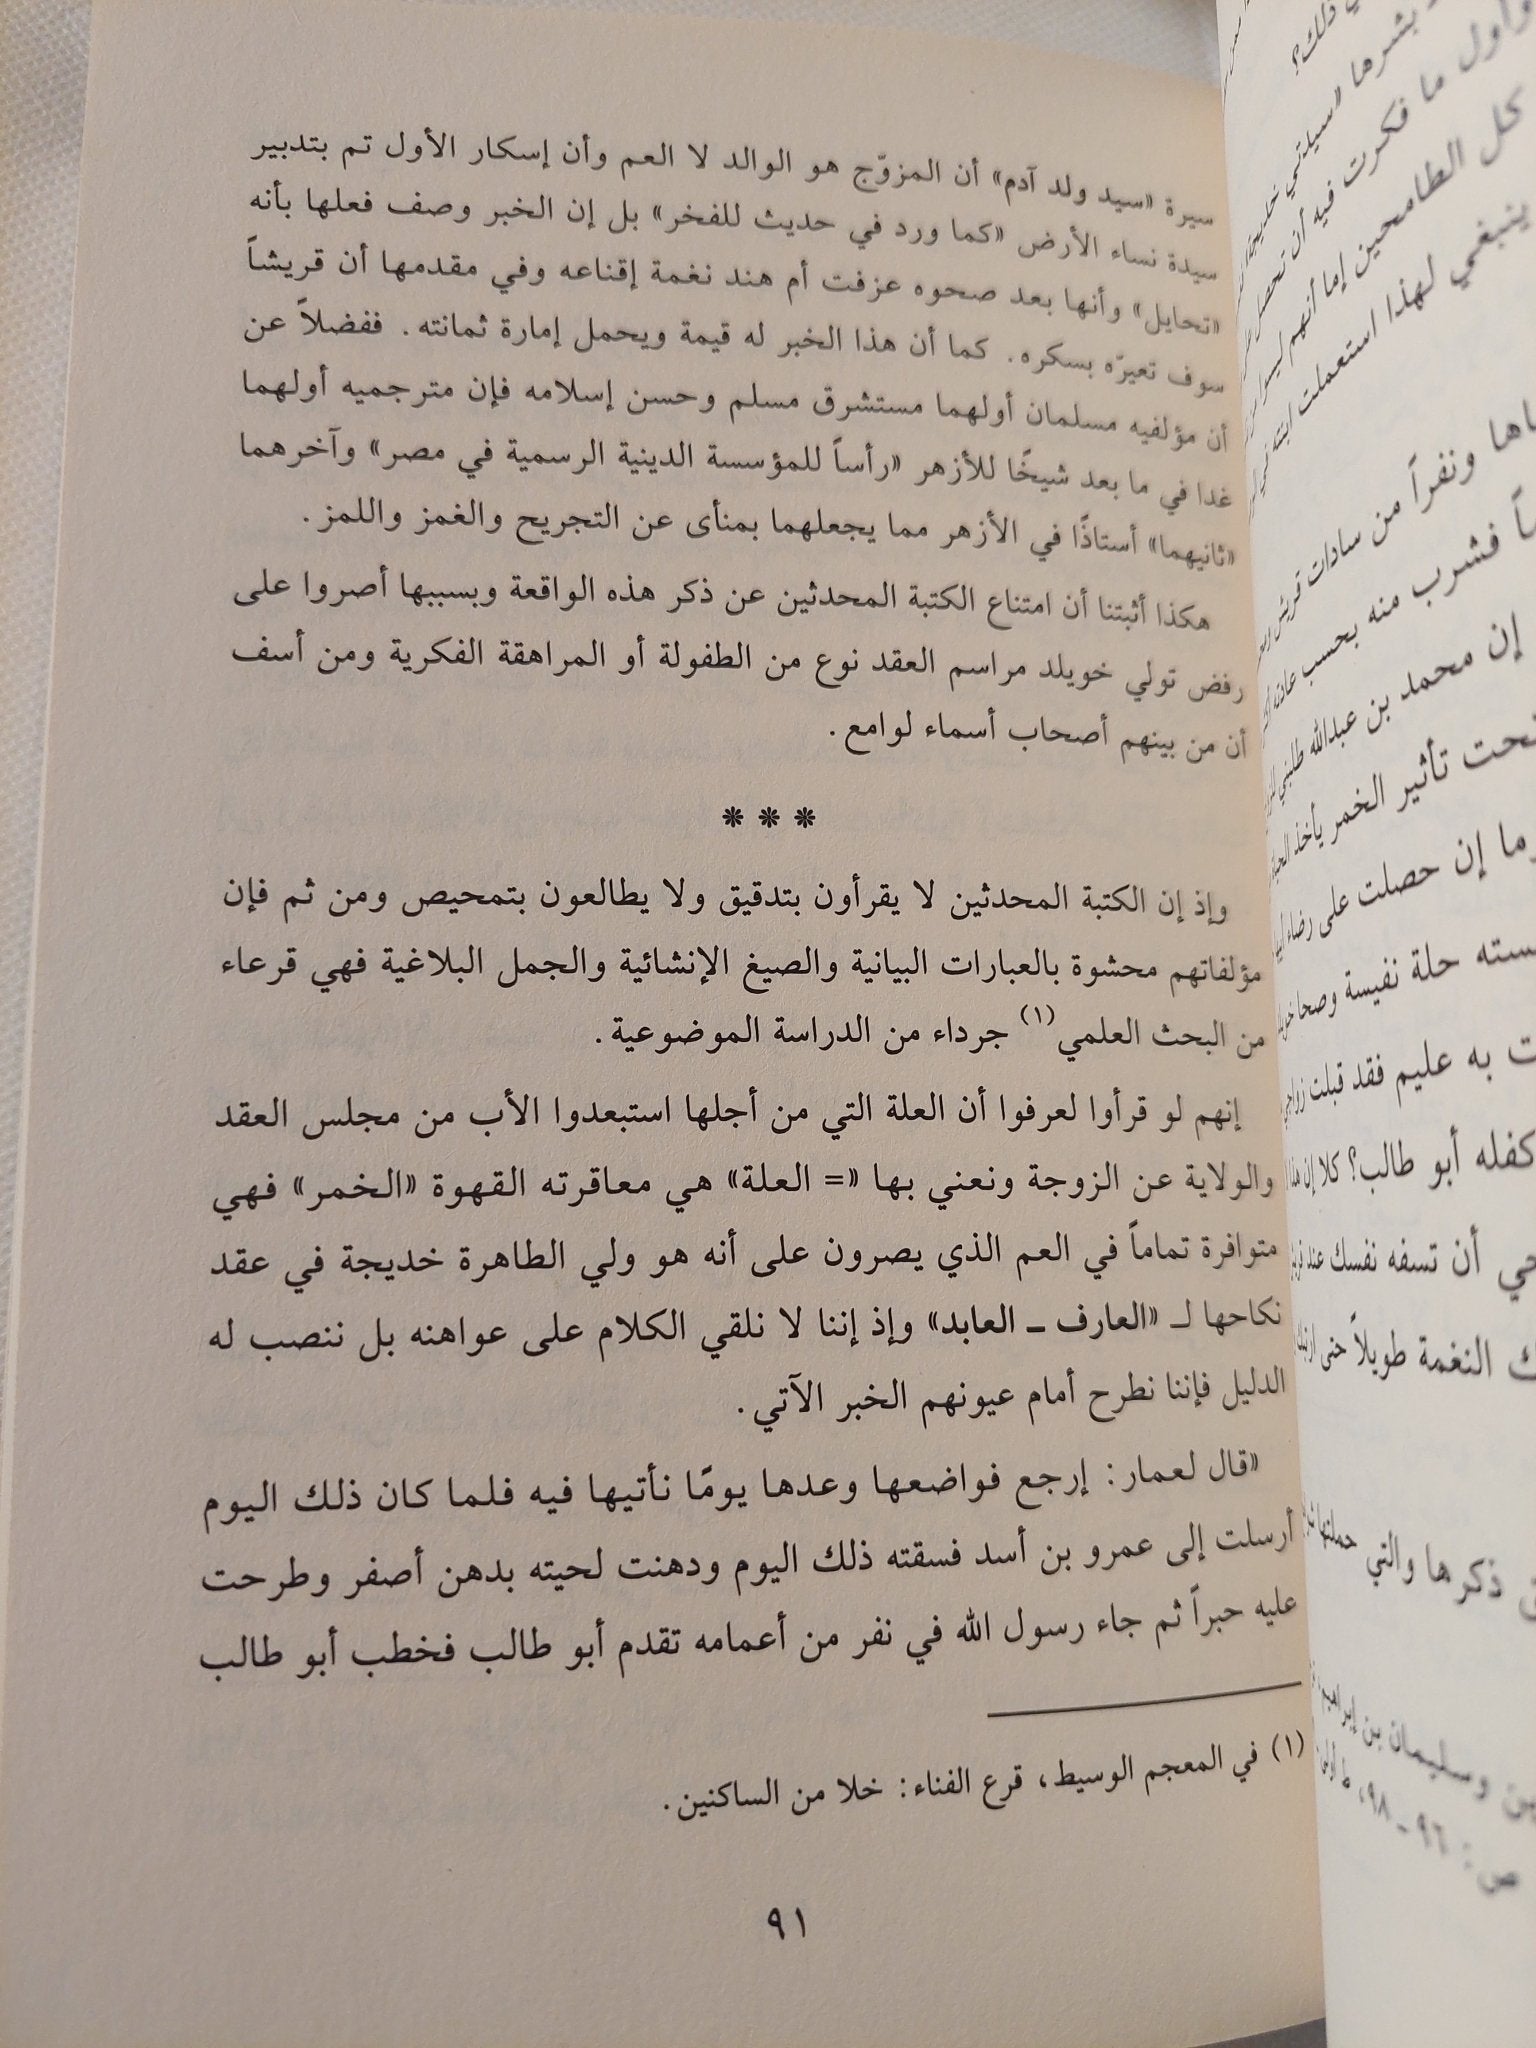 سيرة «سيد ولد آدم» أن المزوّج هو الوالد لا العم وأن إسكار الأول تم بتدبير
سيدة نساء الأرض «كما ورد في حديث للفخر» بل إن الخبر وصف فعلها بأنه
«تحايل» وأنها بعد صحوه عزفت أم هند نغمة إقناعه وفي مقدمها أن قريشاً
سوف تعيرّه بسكره. كما أن هذا الخبر له قيمة ويحمل إمارة ثمانته. ففضلاً عن
أن مؤلفيه مسلمان أولهما مستشرق مسلم وحسن إسلامه فإن مترجميه أولهما
غدا في ما بعد شيخًا للأزهر «رأساً للمؤسسة الدينية الرسمية في مصر» وآخرهما
«ثانيهما» أستاذًا في الأزهر مما يجعلهما بمنأى عن التجريح والغمز واللمز.
هكذا أثبتنا أن امتناع الكتبة المحدثين عن ذكر هذه الواقعة وبسببها أصروا على
رفض تولي خويلد مراسم العقد نوع من الطفولة أو المراهقة الفكرية ومن أسف
أن من بينهم أصحاب أسماء لوامع.
* * *
وإذ إن الكتبة المحدثين لا يقرأون بتدقيق ولا يطالعون بتمحيص ومن ثم فإن
مؤلفاتهم محشوة بالعبارات البيانية والصيغ الإنشائية والجمل البلاغية فهي قرعاء
من البحث العلمي(١) جرداء من الدراسة الموضوعية.
إنهم لو قرأوا لعرفوا أن العلة التي من أجلها استبعدوا الأب من مجلس العقد
والولاية عن الزوجة ونعني بها «= العلة» هي معاقرته القهوة «الخمر» فهي
متوافرة تماماً في العم الذي يصرون على أنه هو ولي الطاهرة خديجة في عقد
نكاحها لـ «العارف ـ العابد» وإذ إننا لا نلقي الكلام على عواهنه بل ننصب له
الدليل فإننا نطرح أمام عيونهم الخبر الآتي.
«قال لعمار: إرجع فواضعها وعدها يومًا نأتيها فيه فلما كان ذلك اليوم
أرسلت إلى عمرو بن أسد فسقته ذلك اليوم ودهنت لحيته بدهن أصفر وطرحت
عليه حبراً ثم جاء رسول الله في نفر من أعمامه تقدم أبو طالب فخطب أبو طالب
(١) في المعجم الوسيط، قرع الفناء: خلا من الساكنين.
٩١
ذلك؟
بشرها «سيدتي خديجة
وأول ما فكرت فيه أن تحصل
كل الطامحين إما أنهم ليسوا
ينبغي لهذا استعملت ابنة
ونفراً من سادات قريش
فشرب منه بحسب عادته
إن محمد بن عبدالله طلبني
تحت تأثير الخمر يأخذ
إن حصلت على رضاء
حلة نفيسة وصحا
به عليم فقد قبلت زواجي
كفله أبو طالب؟ كلا إن هذا
أن تسفه نفسك عند
النغمة طويلاً حتى
ذكرها والتي حملتها
وسليمان بن إبراهيم
ص: ٩٦ - ٩٨، ط أولى